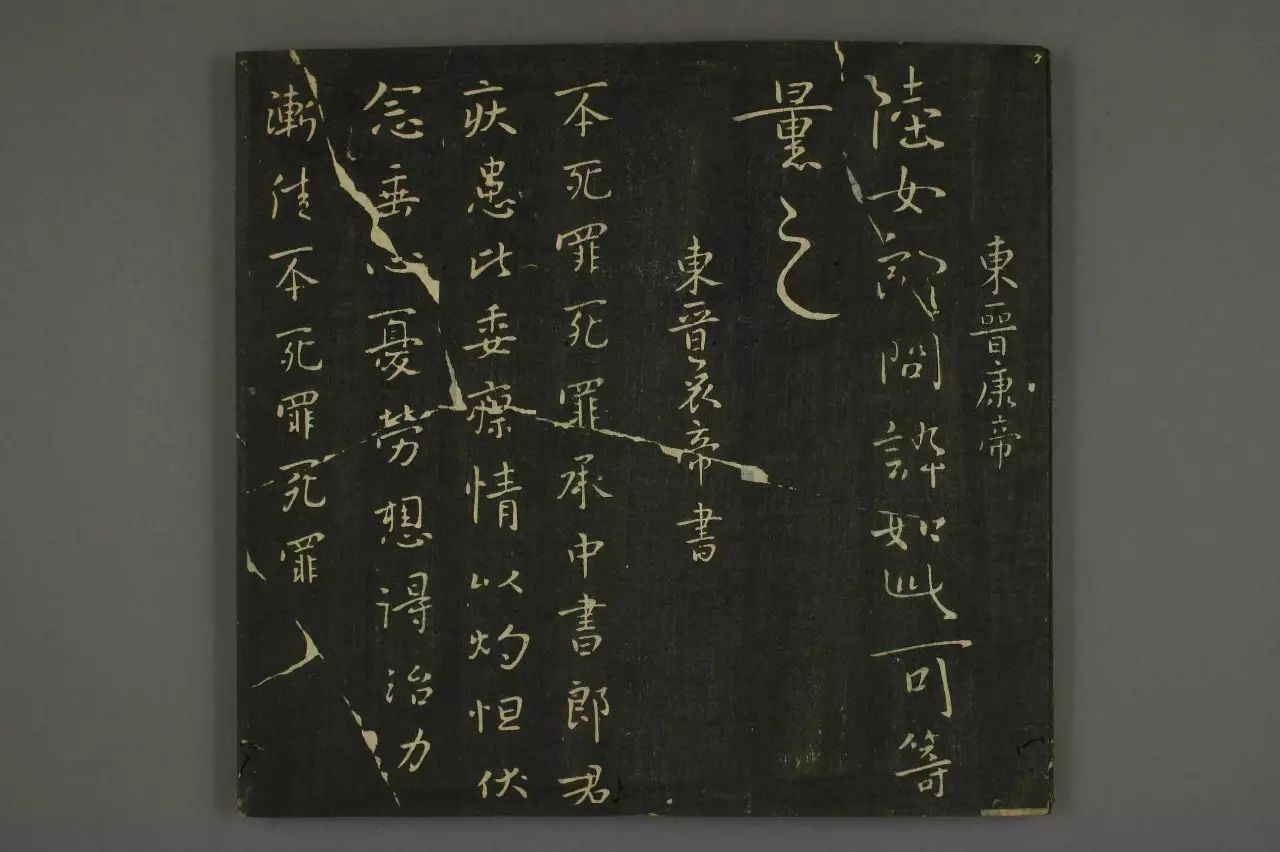 東晉康帝
陸女郎問訃如此可籌
量之
東晉哀帝書
本死罪死罪承中書郎君
疾患此委療情以灼怛伏
念垂心憂勞想得治力
漸佳本死罪死罪